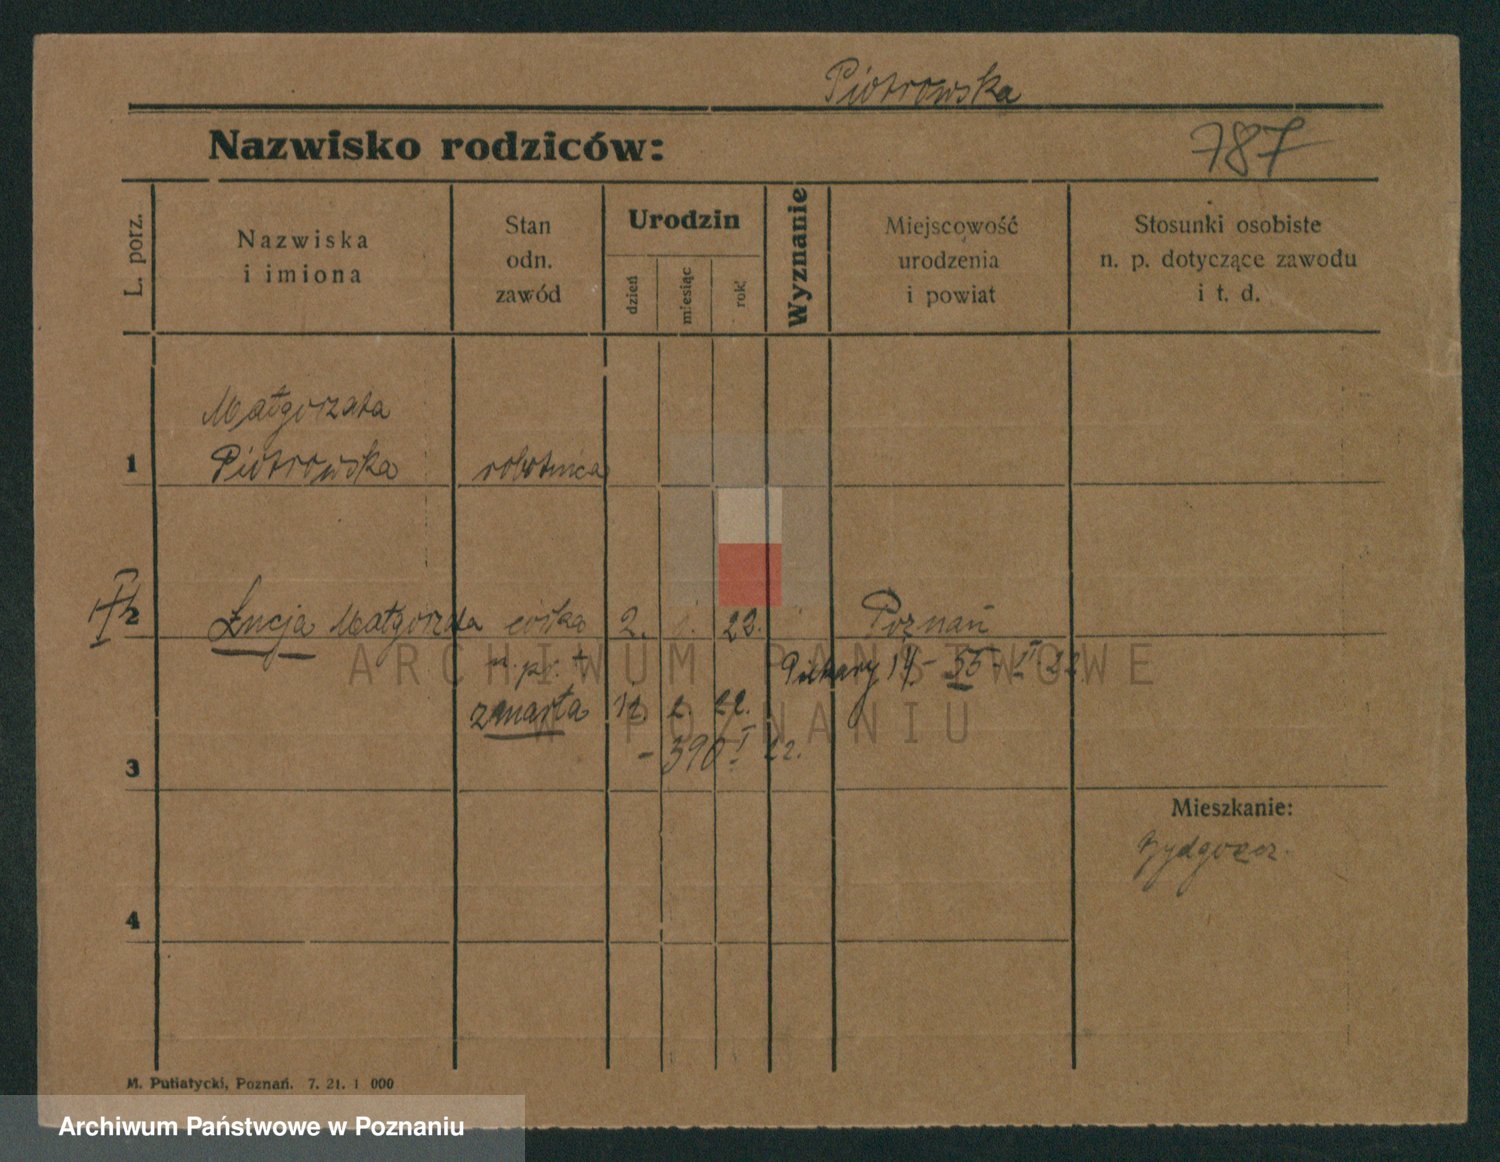 Piotrowska
Nazwisko rodziców:
787
L. porz.
Nazwiska
i imiona
Stan
odn.
zawód
Urodzin
dzień
miesiąc
rok
Wyznanie
Miejscowość
urodzenia
i powiat
Stosunki osobiste
n. p. dotyczące zawodu
i t. d.
Małgorzata
1 Piotrowska robotnica
2 Łucja Małgorzata córka 2. 22. Poznań
n. pr. +
Piekary 14 - 55
zmarła 12. 2. 22.
- 390 I 22.
3
Mieszkanie:
Bydgoszcz.
4
M. Putiatycki, Poznań. 7. 21. 1 000
ARCHIWUM PAŃSTWOWE
W POZNANIU
Archiwum Państwowe w Poznaniu